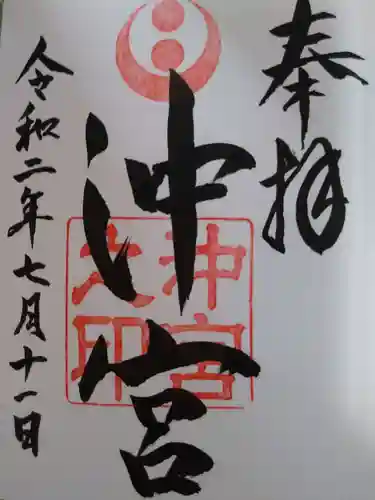 奉拝
沖宮
沖宮
之印
令和二年七月十一日